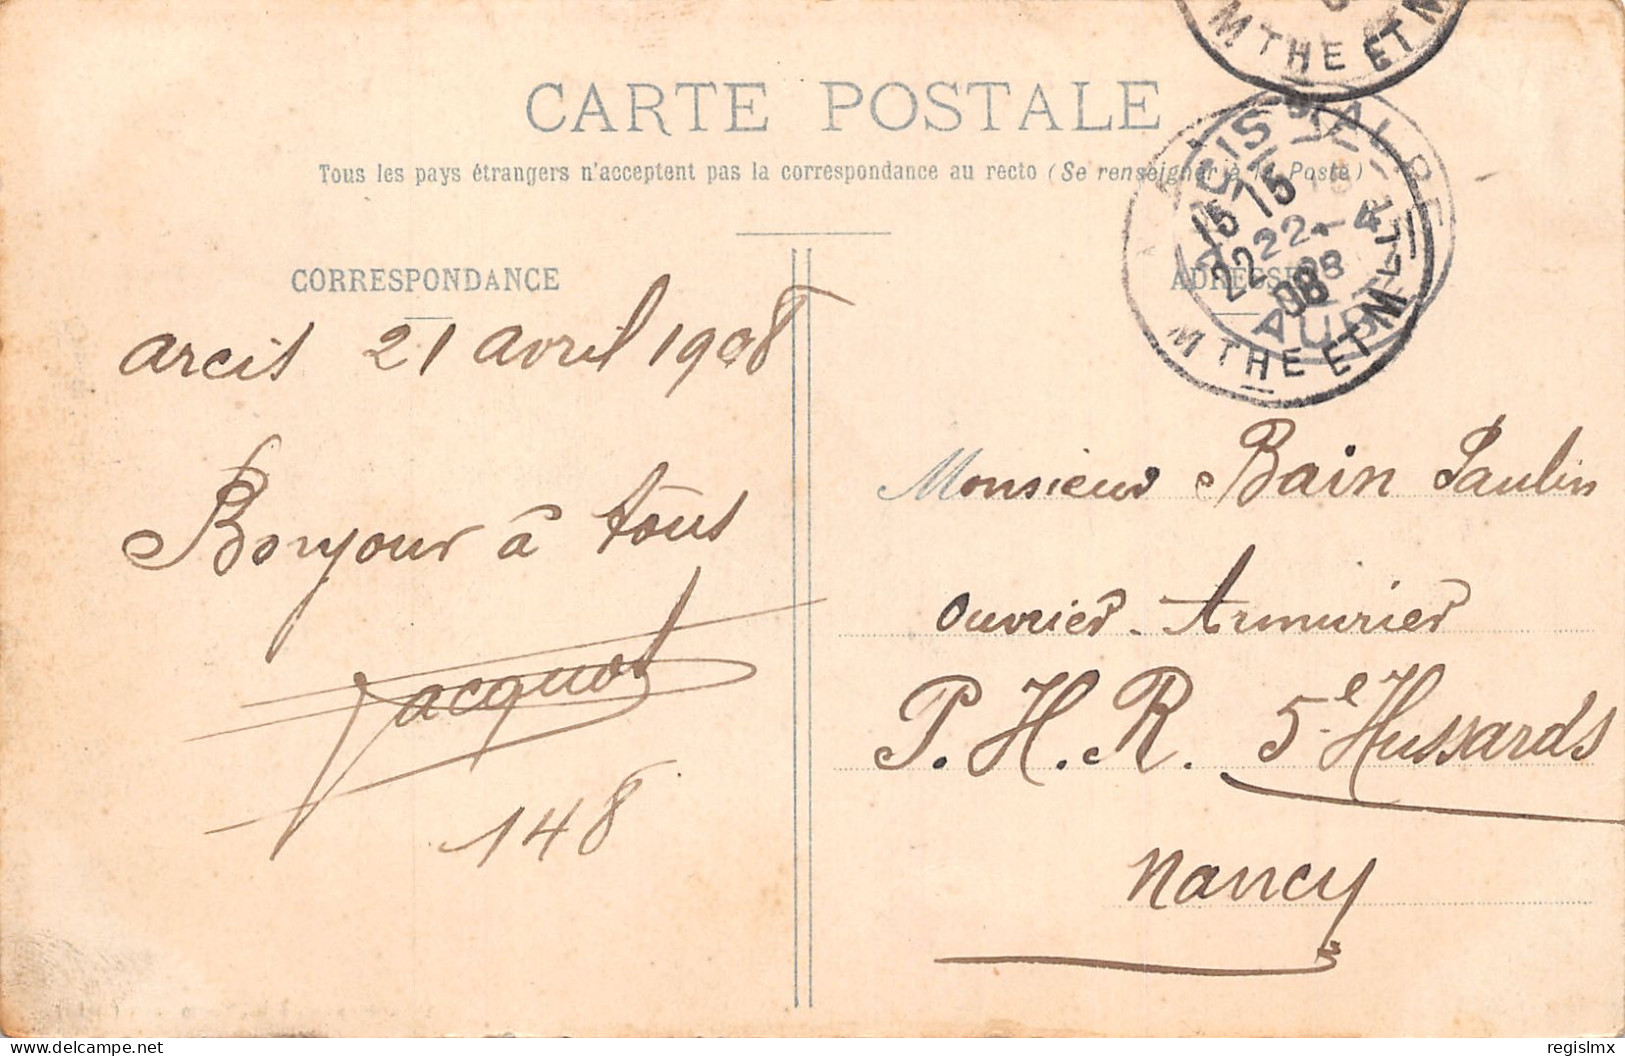 CARTE POSTALE
Tous les pays étrangers n'acceptent pas la correspondance au recto (Se renseigner à la Poste)
CORRESPONDANCE
Arcis 21 Avril 1908
Bonjour à tous
Jacquot
148
ADRESSE
ARCIS SUR AUBE
15
22 - 4
08
15 15
22
08
M THE ET M
M THE ET M
Monsieur Bain Paulin
Ouvrier - Armurier
P. H. R. 5e Hussards
Nancy
regislmx